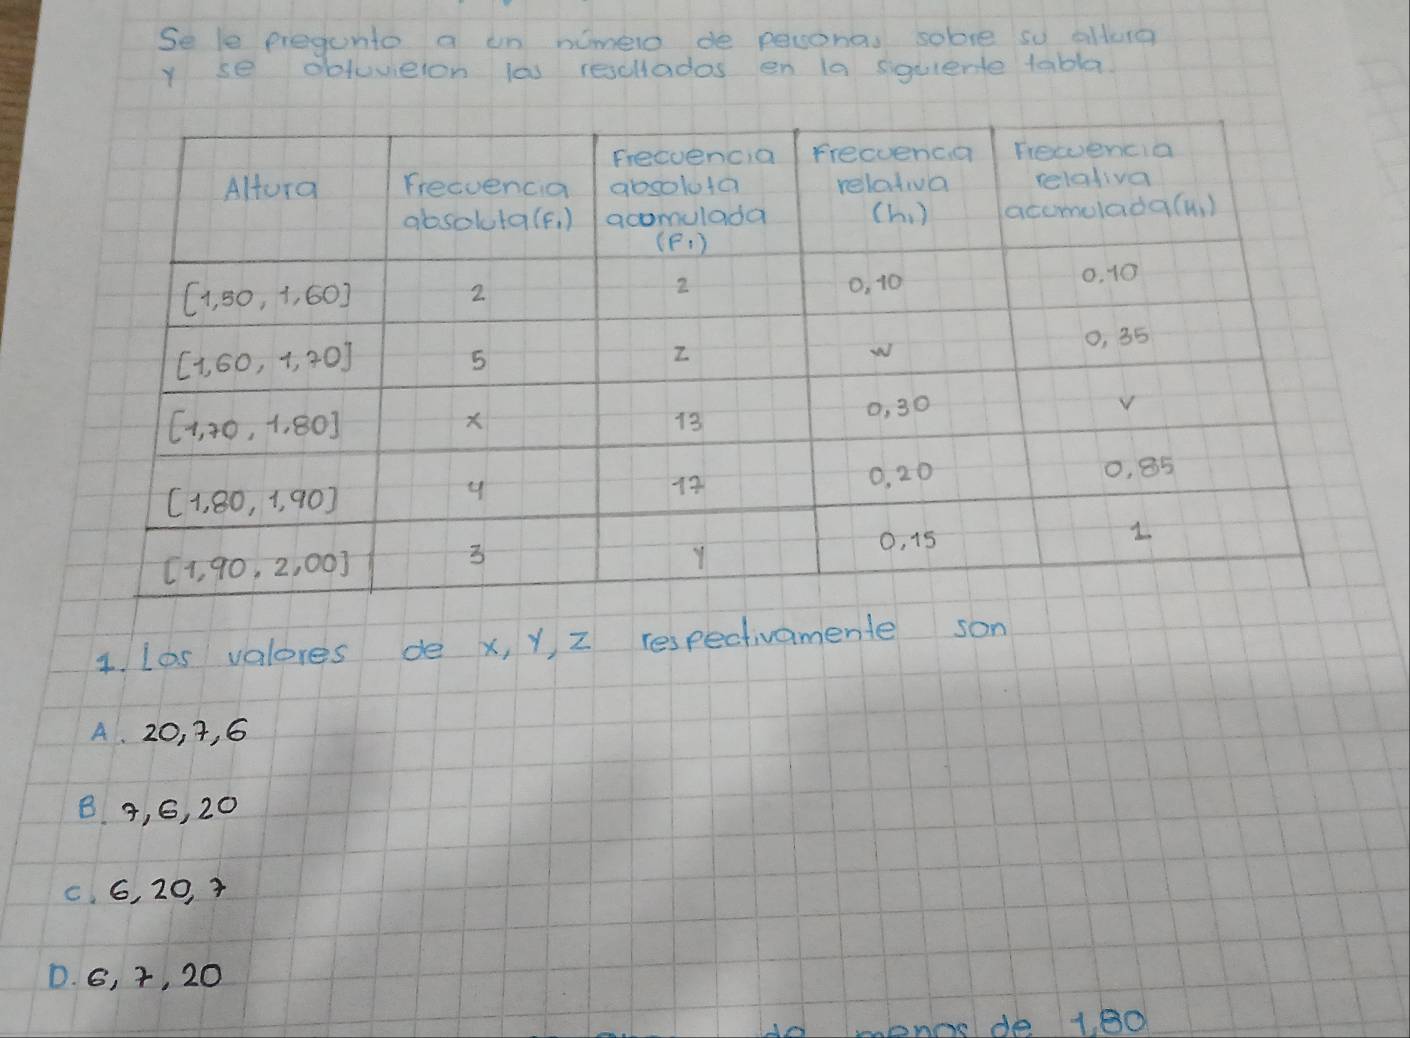 Se le pregunto a un número de personas sobre su altura
y se obtuvieron las resultados en la siguiente tabla.
Altura | Frecuencia absoluta (F₁) | Frecuencia absoluta acomulada (F₁) | Frecuencia relativa (h₁) | Frecuencia relativa acumulada (H₁)
[1,50, 1,60] | 2 | 2 | 0,10 | 0,10
[1,60, 1,70] | 5 | z | w | 0,35
[1,70, 1,80] | x | 13 | 0,30 | v
[1,80, 1,90] | 4 | 17 | 0,20 | 0,85
[1,90, 2,00] | 3 | y | 0,15 | 1
1. Los valores de x, y, z respectivamente son
A. 20, 7, 6
B. 7, 6, 20
C. 6, 20, 7
D. 6, 7, 20
menos de 1,80